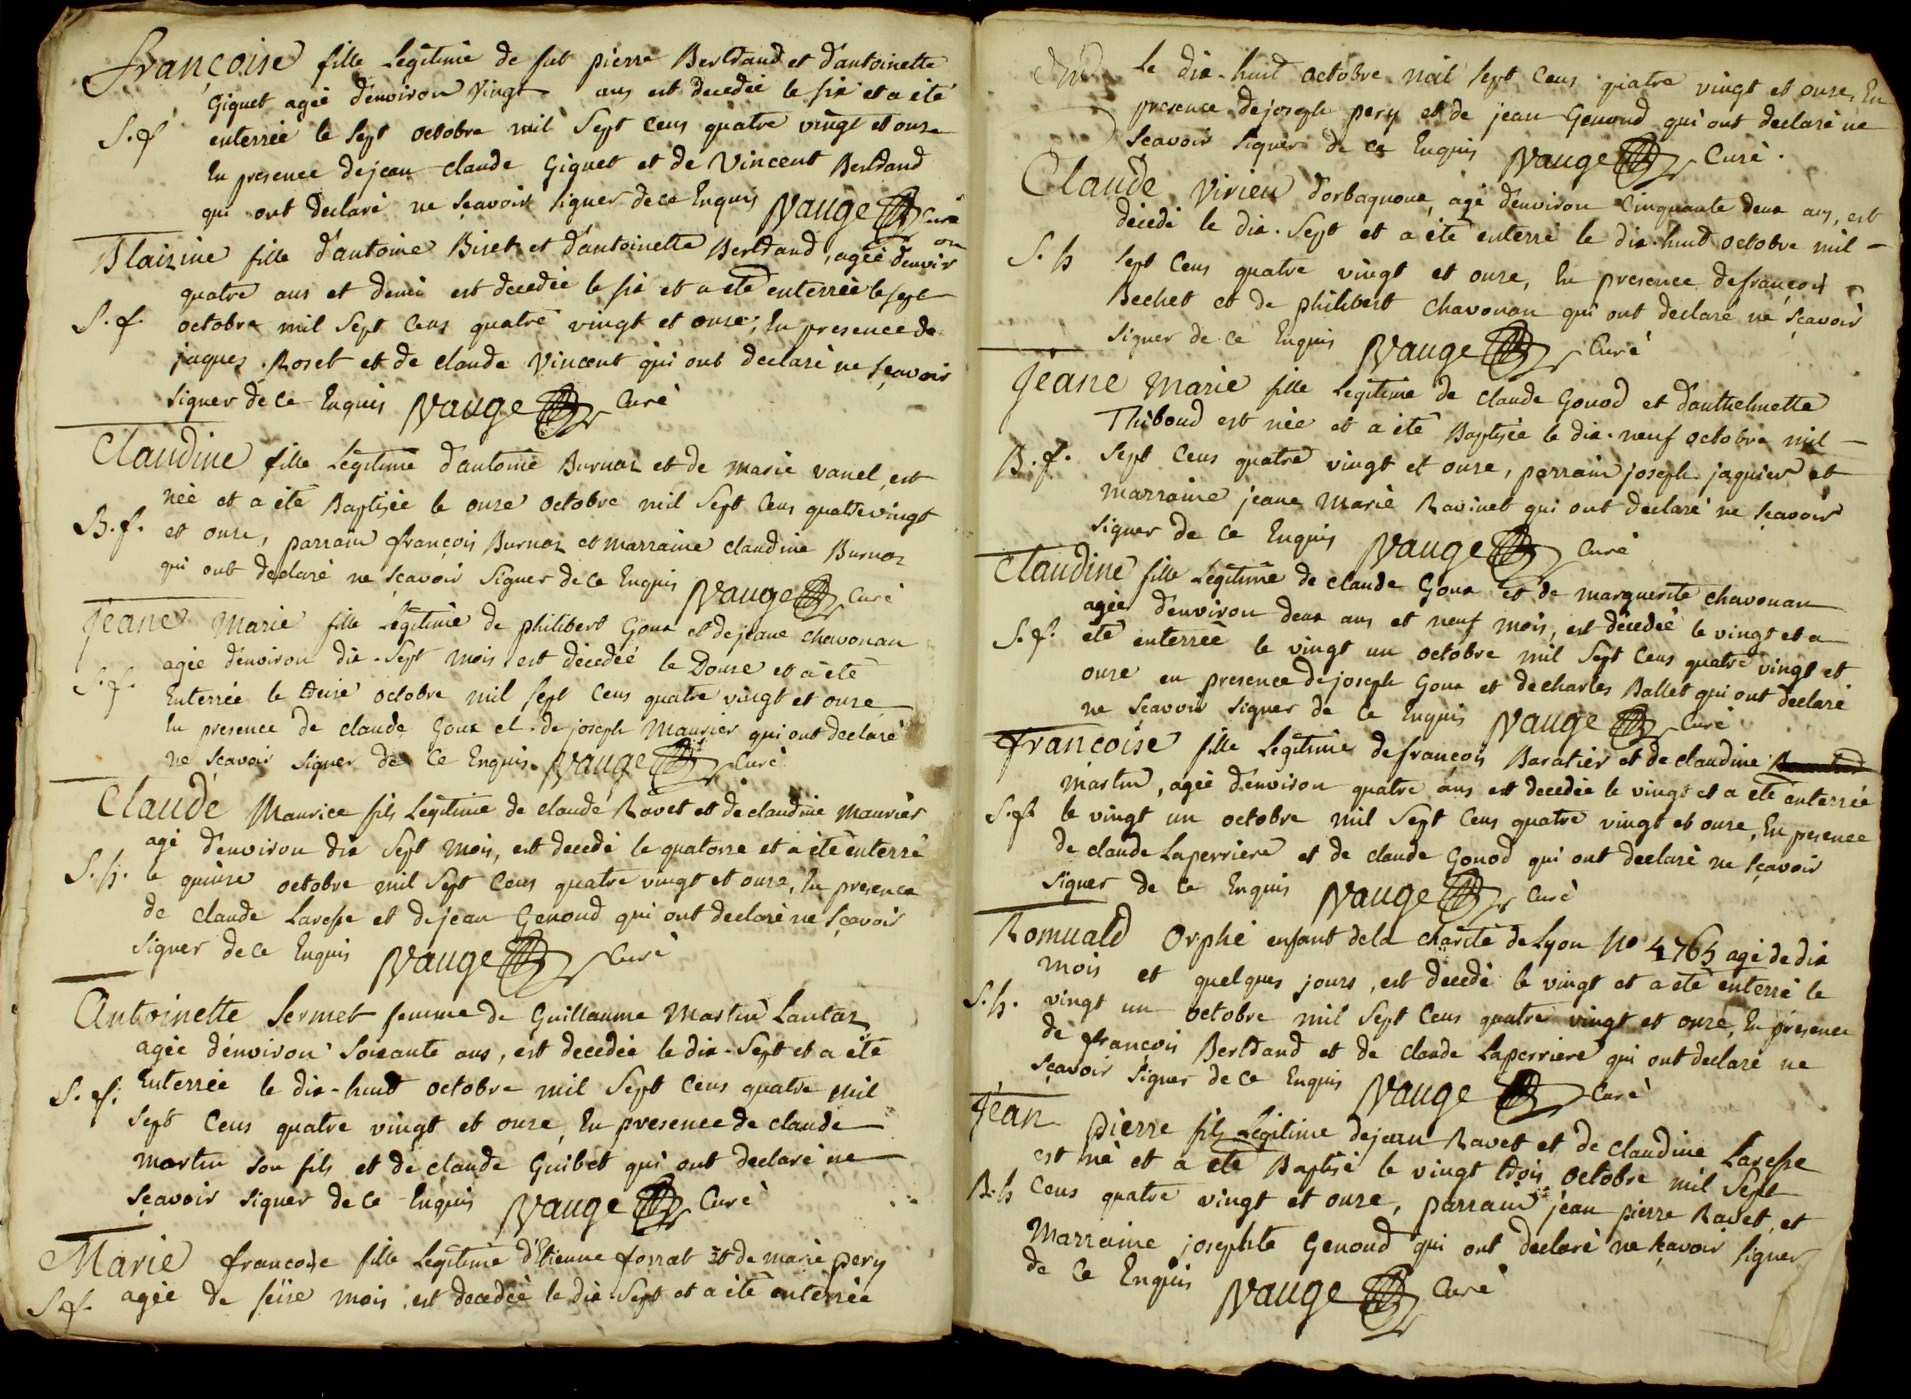 françoise fille Legitime de fut pierre Bertrand et d'antoinette
Giguet agée d'environ Vingt ans est decedée le six et a été
S. f enterrée le Sept octobre mil Sept Cens quatre vingt et onze
En presence de jean claude Giguet et de Vincent Bertrand
qui ont declaré ne sçavoir signer de ce Enquis Vauge Curé
Blaizine fille d'antoine Biset et d'antoinette Bertrand, agée d'environ
quatre ans et demi est decedée le six et a été enterrée le sept
S. f. octobre mil Sept Cens quatre vingt et onze, En presence de
jaques Roset et de claude Vincent qui ont declaré ne sçavoir
signer de ce Enquis Vauge Curé
Claudine fille Legitime d'antoine Burnoz et de marie vanel, est
née et a été Baptisée le onze octobre mil Sept Cens quatre vingt
B. f. et onze, parrain françois Burnoz et marraine claudine Burnoz
qui ont declaré ne sçavoir Signer de ce Enquis Vauge Curé
jeane Marie fille Legitime de philibert Goux et de jeane chavonan
agée d'environ dix-Sept mois est décedée le Douze et a été
S. f. Enterrée le treize octobre mil sept Cens quatre vingt et onze
En presence de claude Goux et de joseph Maurier qui ont declaré
ne sçavoir signer de Ce Enquis Vauge Curé
Claude Maurice fils Legitime de claude Ravet et de claudine maurier
agé d'environ dix Sept mois, est decedé le quatorze et a été enterré
S. h. le quinze octobre mil Sept Cens quatre vingt et onze, En presence
de claude Laresse et de jean Genoud qui ont declaré ne sçavoir
signer de Ce Enquis Vauge Curé
Antoinette Sermet femme de Guillaume Martin Lantaz
agée d'environ Soixante ans, est decedée le dix-Sept et a été
S. f. Enterrée le dix-huit octobre mil Sept Cens quatre mil
Sept Cens quatre vingt et onze, En presence de claude
martin son fils et de claude Guibet qui ont declaré ne
sçavoir signer de ce Enquis Vauge Curé
Marie francoise fille Legitime d'Etienne forrat Et de marie pery
S. f. agée de seize mois est decedée le dix-Sept et a été enterrée
Le dix-huit octobre mil sept Cens quatre vingt et onze, En
presence de joseph pery et de jean Genoud qui ont declaré ne
scavoir signer de ce Enquis Vauge Curé.
Claude Virieu d'orbagnoux, agé d'environ Cinquante deux ans, est
décedé le dix-Sept et a été enterré le dix-huit octobre mil
S. h Sept Cens quatre vingt et onze, En presence de françois
Bechet et de philibert chavonan qui ont declaré ne sçavoir
signer de ce Enquis Vauge Curé
jeane Marie fille Legitime de claude Gonod et d'anthelmette
Thiboud est née et a été Baptisée le dix-neuf octobre mil
B. f. Sept Cens quatre vingt et onze, parrain joseph jaquier et
marraine jeane Marie Ravinet qui ont declaré ne sçavoir
signer de Ce Enquis Vauge Curé
Claudine fille Légitime de claude Goux et de marguerite chavonan
agée d'environ deux ans et neuf mois, est décedée le vingt et a
S. f. été enterrée le vingt un octobre mil Sept Cens quatre vingt et
onze en presence de joseph Goux et de charles Ballet qui ont declaré
ne Sçavoir signer de Ce Enquis Vauge Curé
françoise fille Legitime de françois Baratier et de claudine
martin, agée d'environ quatre ans est decedée le vingt et a été enterrée
S. f. le vingt un octobre mil Sept Cens quatre vingt et onze, En presence
de claude Laperriere et de claude Gonod qui ont declaré ne sçavoir
signer de Ce Enquis Vauge Curé
Romuald Orphé enfant de la charité de Lyon No 4765 agé de dix
mois et quelques jours, est decedé le vingt et a été enterré le
S. h. vingt un octobre mil Sept Cens quatre vingt et onze, En presence
de françois Bertrand et de claude Laperriere qui ont declaré ne
sçavoir signer de ce Enquis Vauge Curé
jean pierre fils Légitime de jean Ravet et de claudine Laresse
est né et a été Baptisé le vingt trois octobre mil Sept
B. h Cens quatre vingt et onze, parrain jean pierre Ravet, et
Marraine josephte Genoud qui ont declaré ne sçavoir signer
de Ce Enquis Vauge Curé